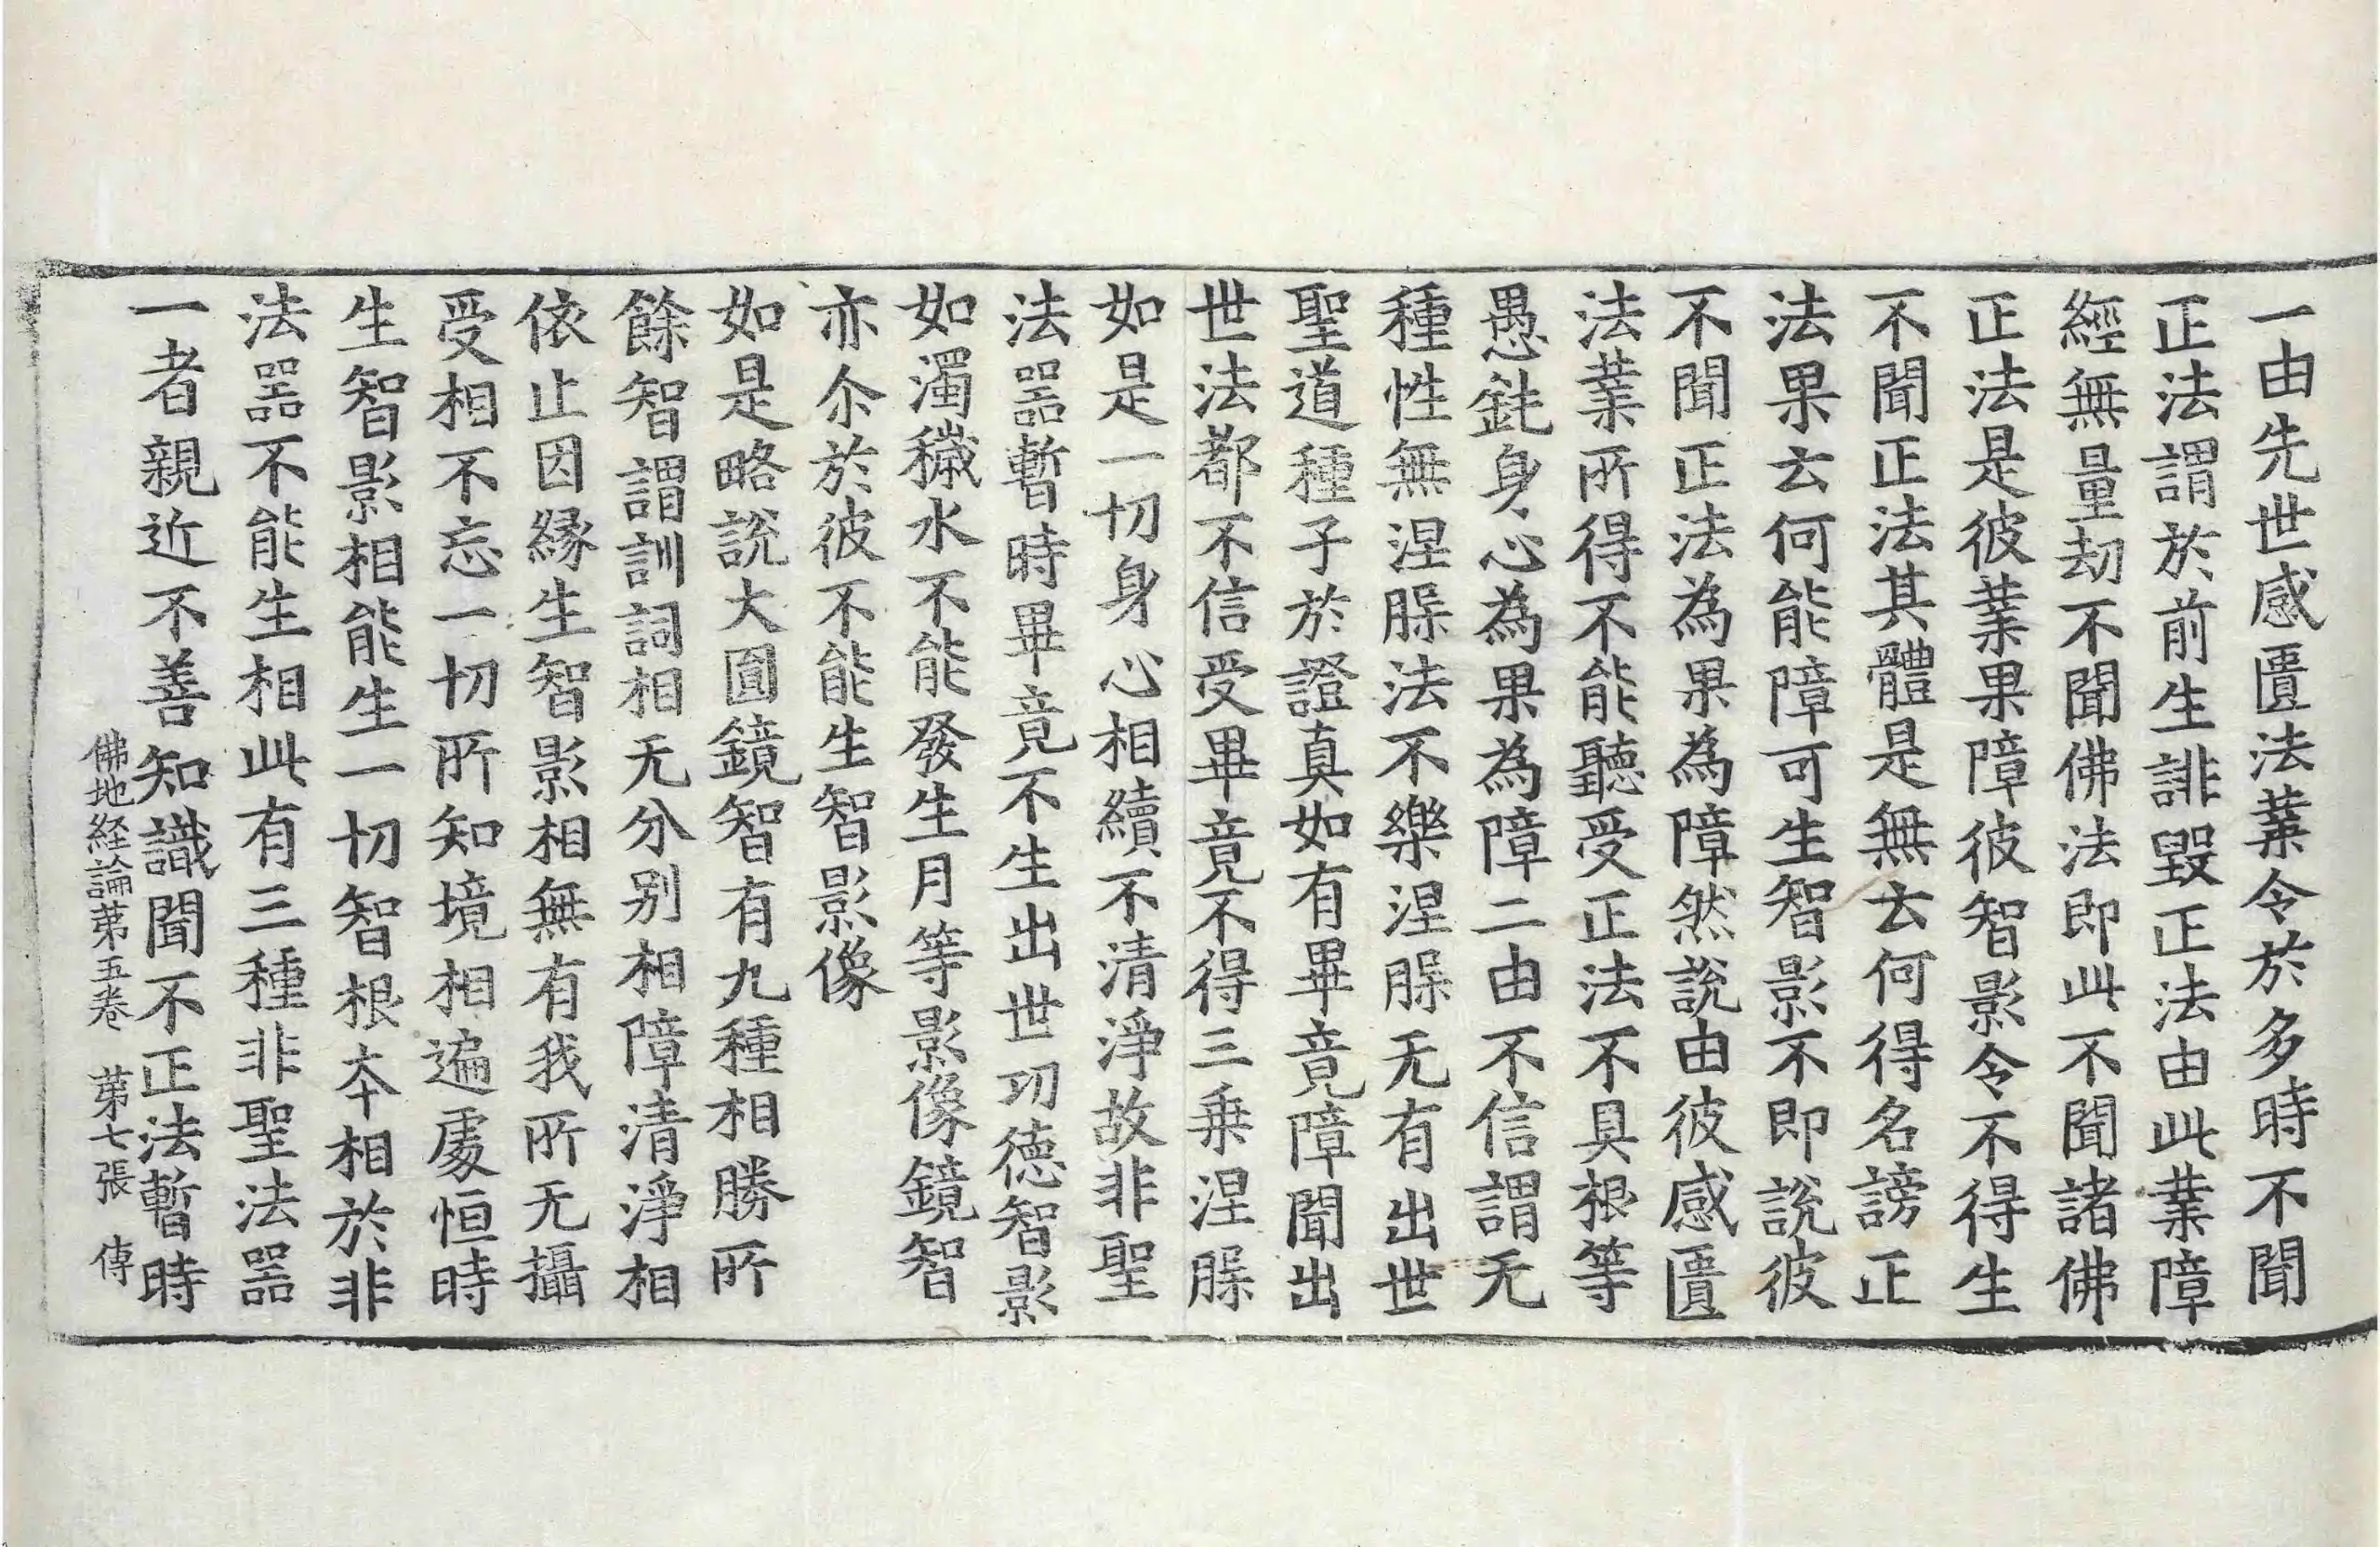 一由先世感匱法業令於多時不聞
正法謂於前生誹毀正法由此業障
經無量劫不聞佛法即此不聞諸佛
正法是彼業果障彼智影令不得生
不聞正法其體是無云何得名謗正
法果云何能障可生智影不即說彼
不聞正法為果為障然說由彼感匱
法業所得不能聽受正法不具根等
愚鈍身心為果為障二由不信謂无
種性無涅槃法不樂涅槃无有出世
聖道種子於證真如有畢竟障聞出
世法都不信受畢竟不得三乗涅槃
如是一切身心相續不清淨故非聖
法器暫時畢竟不生出世功德智影
如濁穢水不能發生月等影像鏡智
亦尒於彼不能生智影像
如是略說大圓鏡智有九種相勝所
餘智謂訓詞相无分别相障清淨相
依止因縁生智影相無有我所无攝
受相不忘一切所知境相遍處恒時
生智影相能生一切智根夲相於非
法器不能生相此有三種非聖法器
一者親近不善知識聞不正法暫時
佛地経論苐五卷 苐七張 傳